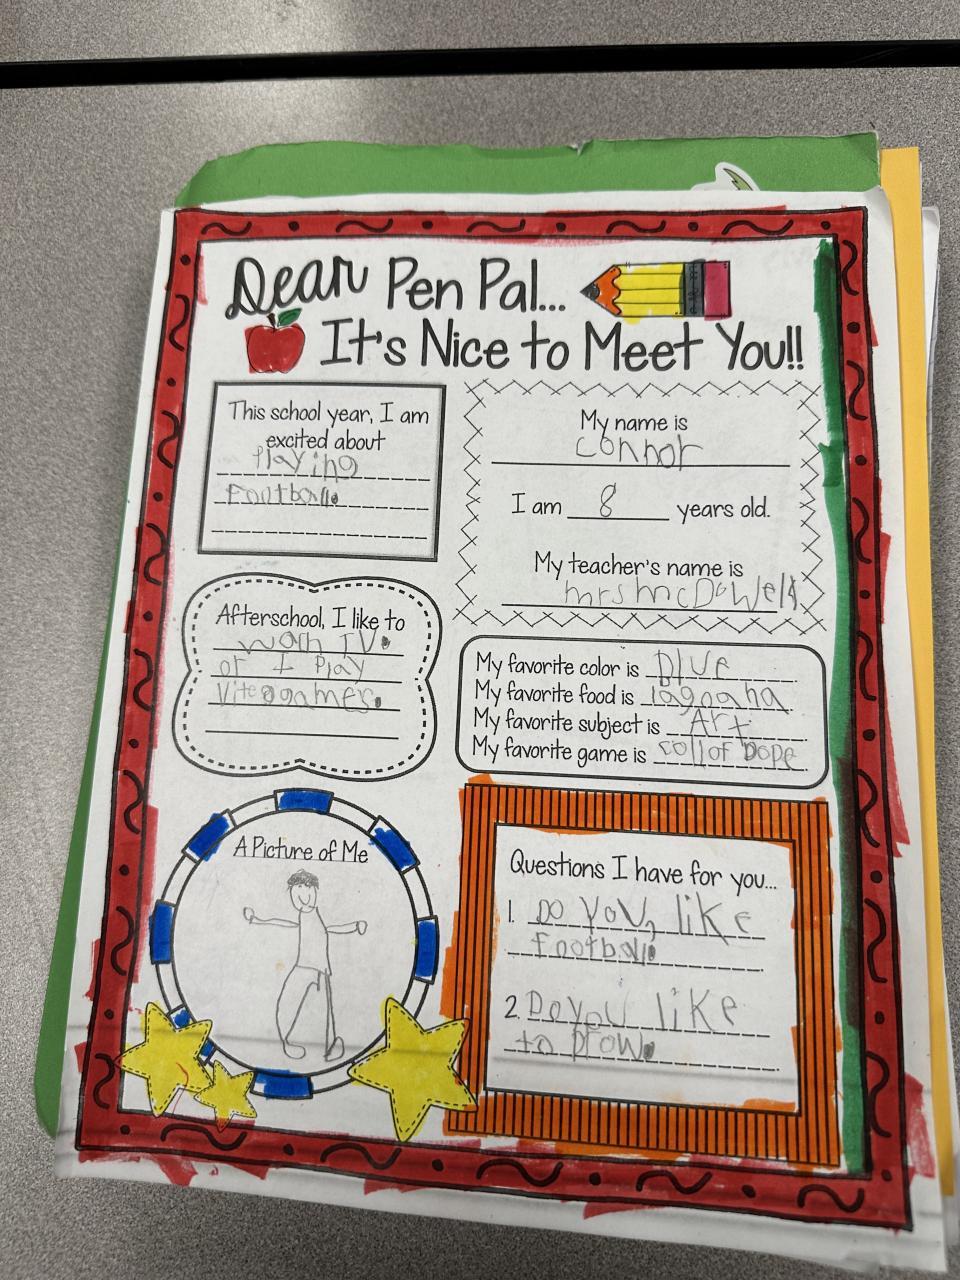 Dear Pen Pal...
It's Nice to Meet You!!
This school year, I am
excited about
Playing
Football.
My name is
Connor
I am 8 years old.
My teacher's name is
mrs mcDowell
Afterschool, I like to
wach TV.
or I Play
Viteogames.
My favorite color is Blue
My favorite food is lagnaha
My favorite subject is Art
My favorite game is coll of Dope
A Picture of Me
Questions I have for you...
1. Do you, like
Football.
2. Do you like
to Drow.